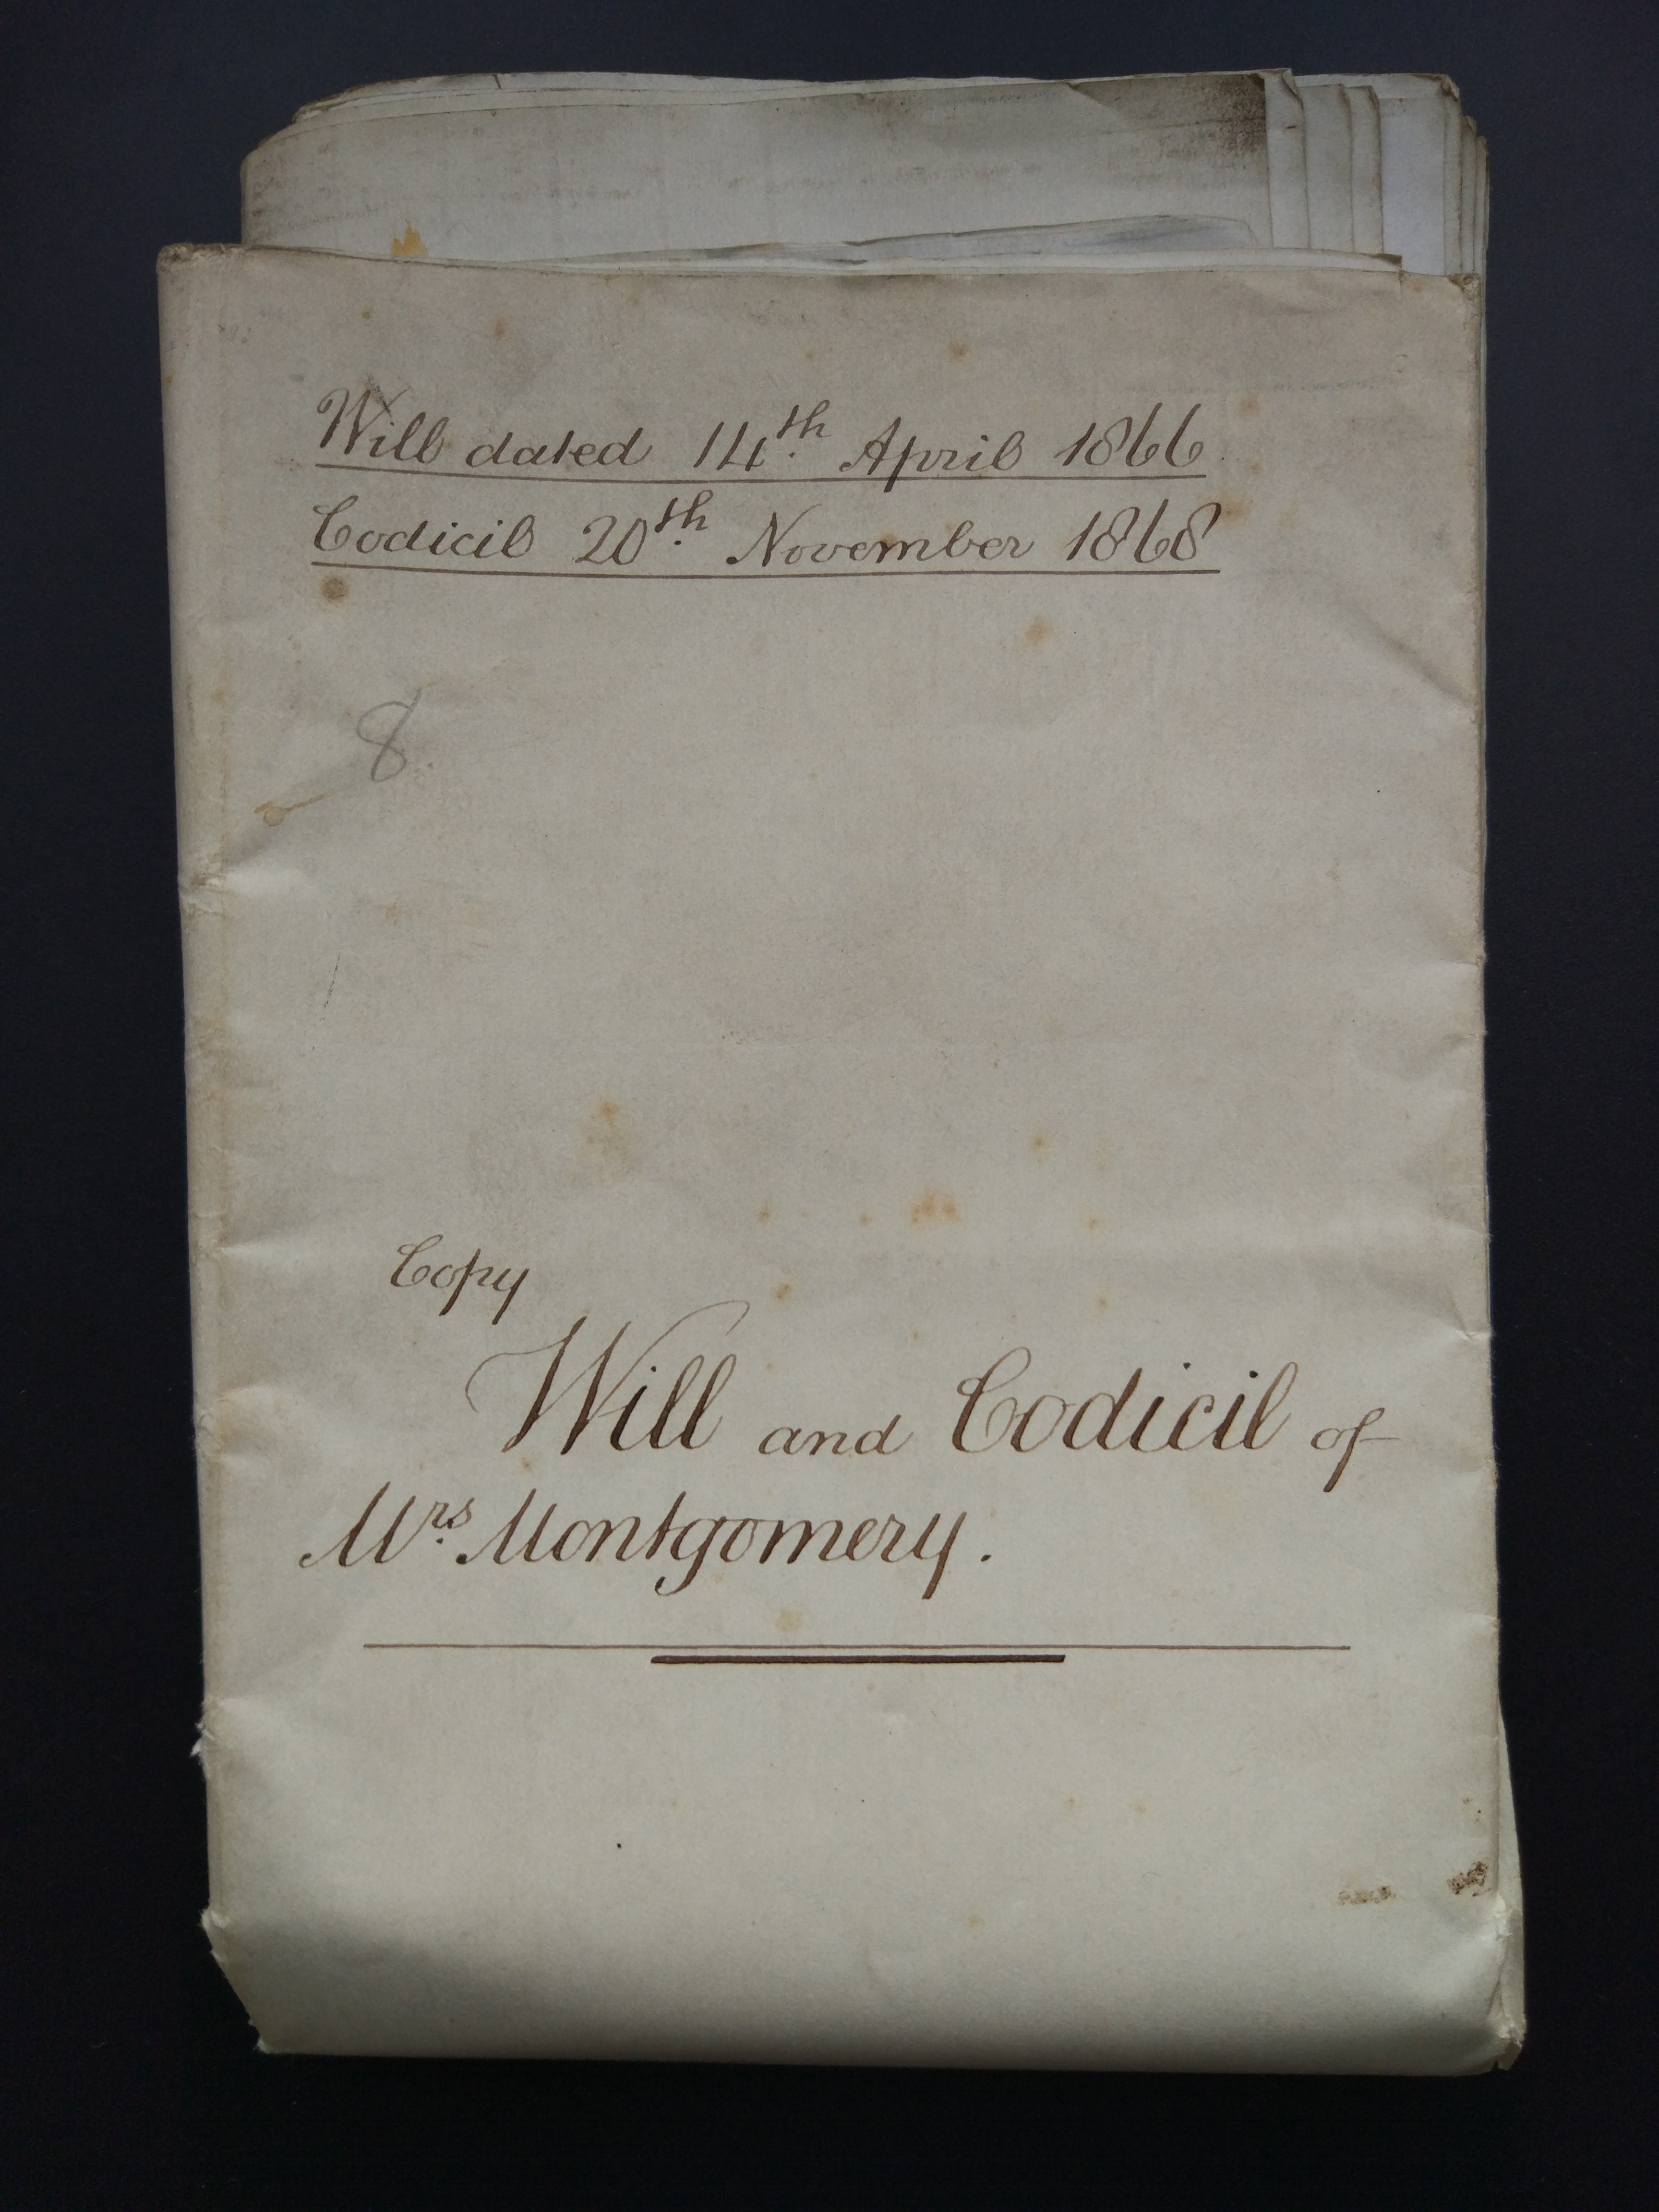 Will dated 14th. April 1866.
Codicil 20th. November 1868
8.
Copy
Will and Codicil of
Mrs. Montgomery.